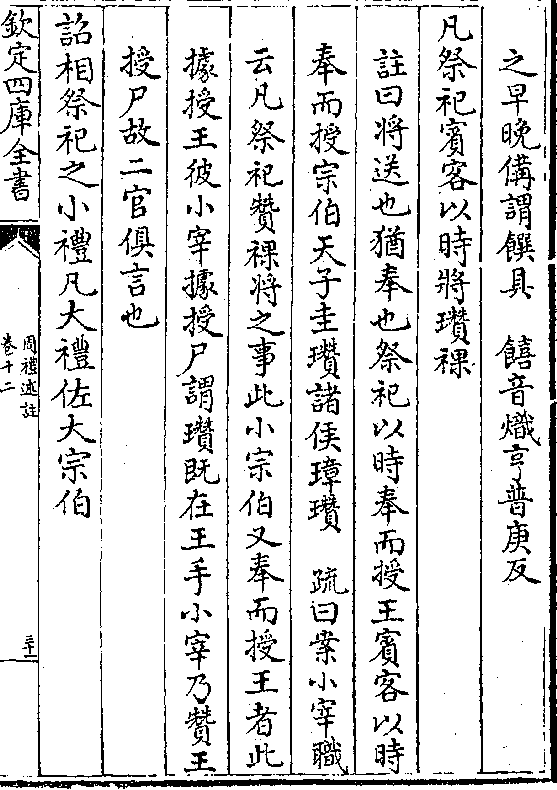 之早晚備謂饌具　饎音熾亨普庚反
凡祭祀賓客以時將瓚祼
註曰將送也猶奉也祭祀以時奉而授王賓客以時
奉而授宗伯天子圭瓚諸侯璋瓚　疏曰案小宰職
云凡祭祀贊祼將之事此小宗伯又奉而授王者此
據授王彼小宰據授尸謂瓚既在王手小宰乃贊王
授尸故二官俱言也
詔相祭祀之小禮凡大禮佐大宗伯
欽定四庫全書
周禮述註
卷十二
三十一